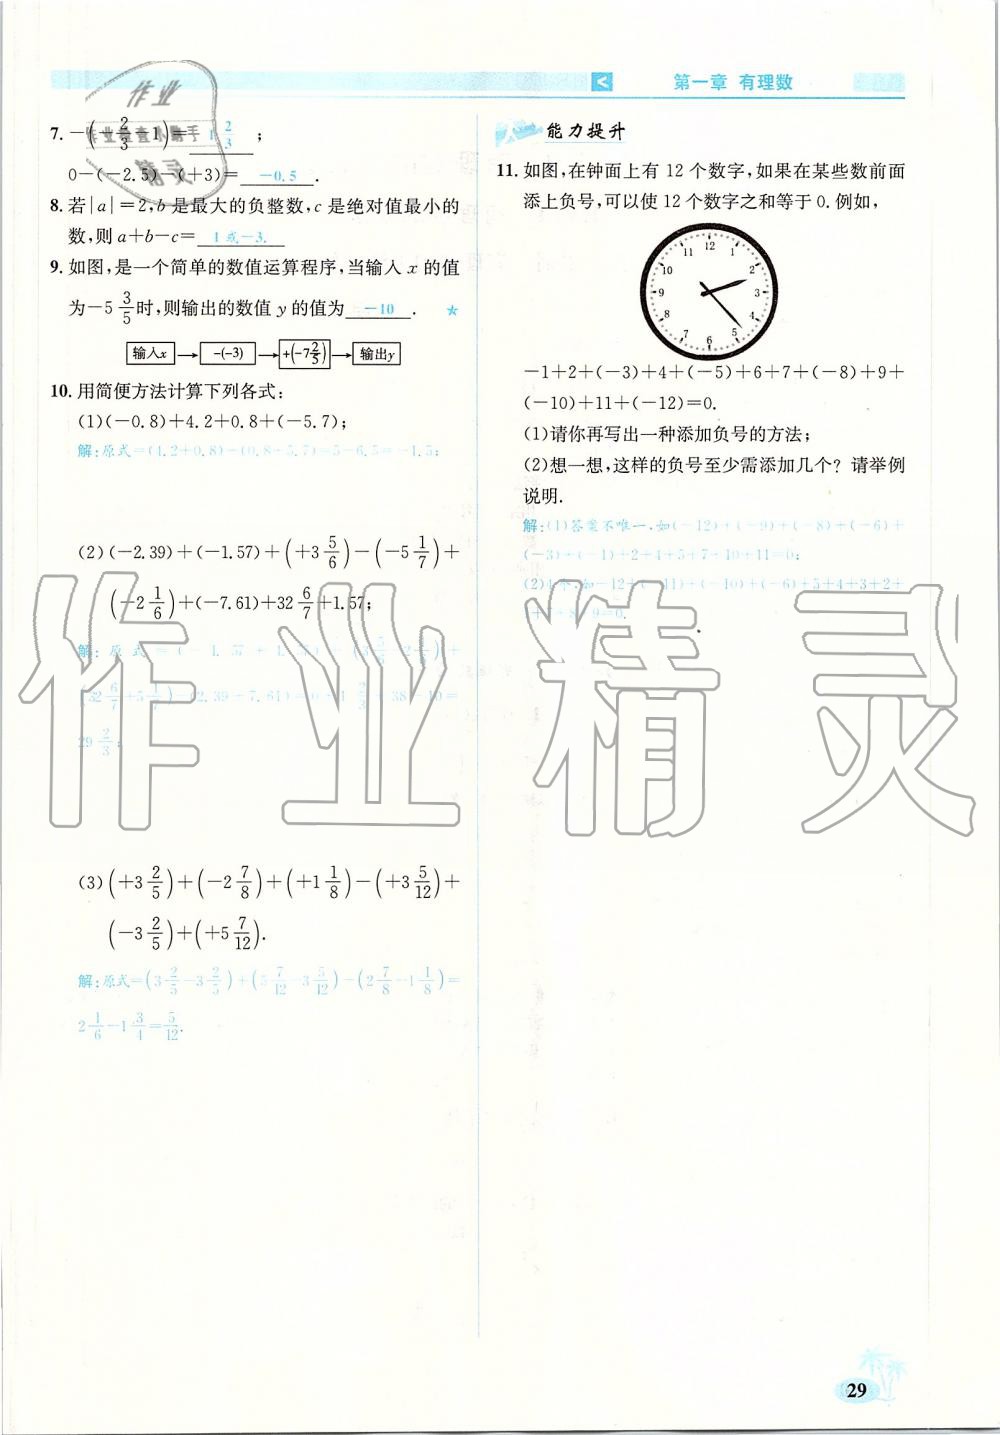 第一章 有理数
作业
作业检查小助手
精灵
7. -(-2/3-1)=1 2/3;
0-(-2.5)-(+3)= -0.5 .
8. 若|a|=2,b是最大的负整数,c是绝对值最小的
数,则a+b-c= 1或-3.
9. 如图,是一个简单的数值运算程序,当输入x的值
为-5 3/5时,则输出的数值y的值为 -10 . ★
输入x → -(-3) → +(-7 2/5) → 输出y
10. 用简便方法计算下列各式:
(1)(-0.8)+4.2+0.8+(-5.7);
解:原式=(4.2+0.8)-(0.8+5.7)=5-6.5=-1.5;
(2)(-2.39)+(-1.57)+(+3 5/6)-(-5 1/7)+
(-2 1/6)+(-7.61)+32 6/7+1.57;
解:原式=(-1.57+1.57)+(3 5/6-2 1/6)+
(32 6/7+5 1/7)-(2.39+7.61)=0+1 2/3+38-10=
29 2/3;
(3)(+3 2/5)+(-2 7/8)+(+1 1/8)-(+3 5/12)+
(-3 2/5)+(+5 7/12).
解:原式=(3 2/5-3 2/5)+(5 7/12-3 5/12)-(2 7/8-1 1/8)=
2 1/6-1 3/4=5/12.
能力提升
11. 如图,在钟面上有12个数字,如果在某些数前面
添上负号,可以使12个数字之和等于0.例如,
12 1 2 3 4 5 6 7 8 9 10 11
-1+2+(-3)+4+(-5)+6+7+(-8)+9+
(-10)+11+(-12)=0.
(1)请你再写出一种添加负号的方法;
(2)想一想,这样的负号至少需添加几个? 请举例
说明.
解:(1)答案不唯一,如(-12)+(-9)+(-8)+(-6)+
(-3)+(-1)+2+4+5+7+10+11=0;
(2)4个,如-12+(-11)+(-10)+(-6)+5+4+3+2+
1+7+8+9=0.
作业精灵
29